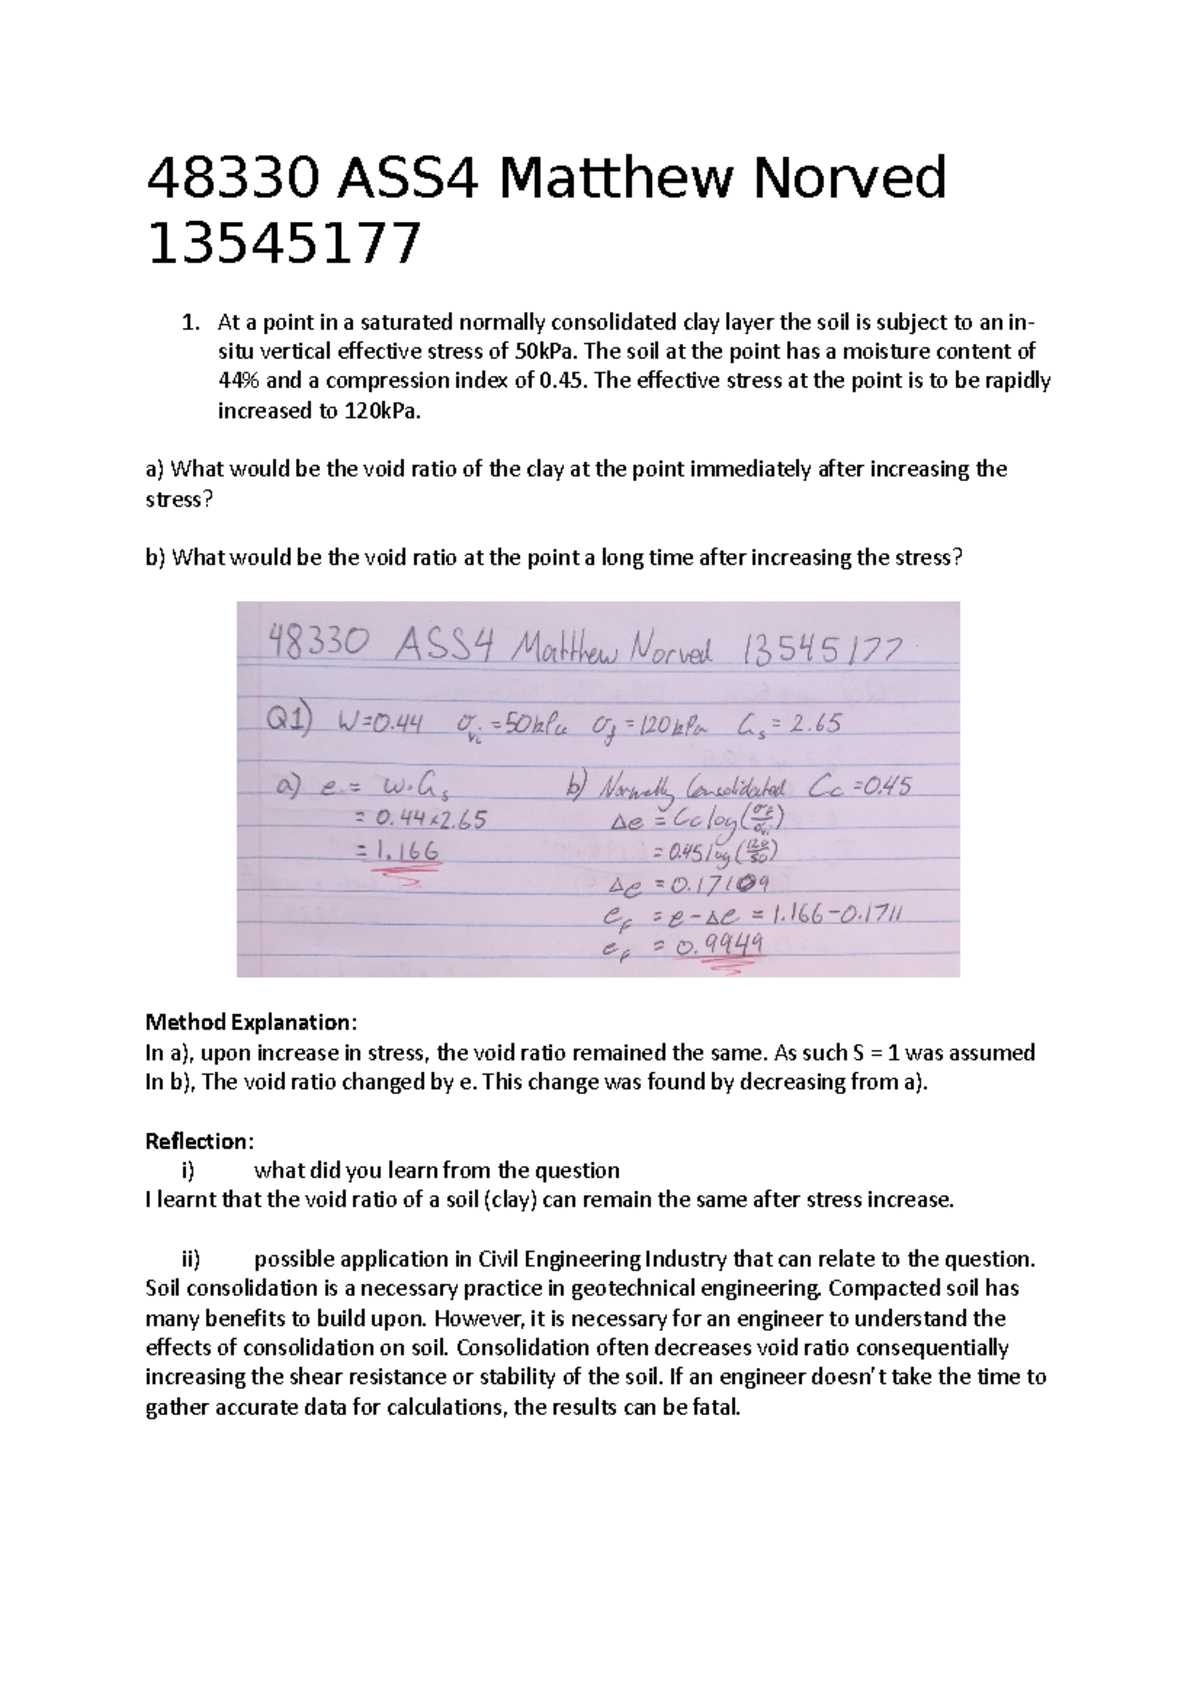 48330 ASS4 Matthew Norved
13545177
1. At a point in a saturated normally consolidated clay layer the soil is subject to an in-
situ vertical effective stress of 50kPa. The soil at the point has a moisture content of
44% and a compression index of 0.45. The effective stress at the point is to be rapidly
increased to 120kPa.
a) What would be the void ratio of the clay at the point immediately after increasing the
stress?
b) What would be the void ratio at the point a long time after increasing the stress?
48330 ASS4 Matthew Norved 13545177
Q1) W=0.44 σvi =50kPa σf =120kPa Gs = 2.65
a) e = w.Gs
= 0.44×2.65
= 1.166
b) Normally Consolidated Cc =0.45
Δe = Cc log(σf/σvi)
= 0.45log(120/50)
Δe = 0.17109
ef = e-Δe = 1.166-0.1711
ef = 0.9949
Method Explanation:
In a), upon increase in stress, the void ratio remained the same. As such S = 1 was assumed
In b), The void ratio changed by e. This change was found by decreasing from a).
Reflection:
i) what did you learn from the question
I learnt that the void ratio of a soil (clay) can remain the same after stress increase.
ii) possible application in Civil Engineering Industry that can relate to the question.
Soil consolidation is a necessary practice in geotechnical engineering. Compacted soil has
many benefits to build upon. However, it is necessary for an engineer to understand the
effects of consolidation on soil. Consolidation often decreases void ratio consequentially
increasing the shear resistance or stability of the soil. If an engineer doesn't take the time to
gather accurate data for calculations, the results can be fatal.